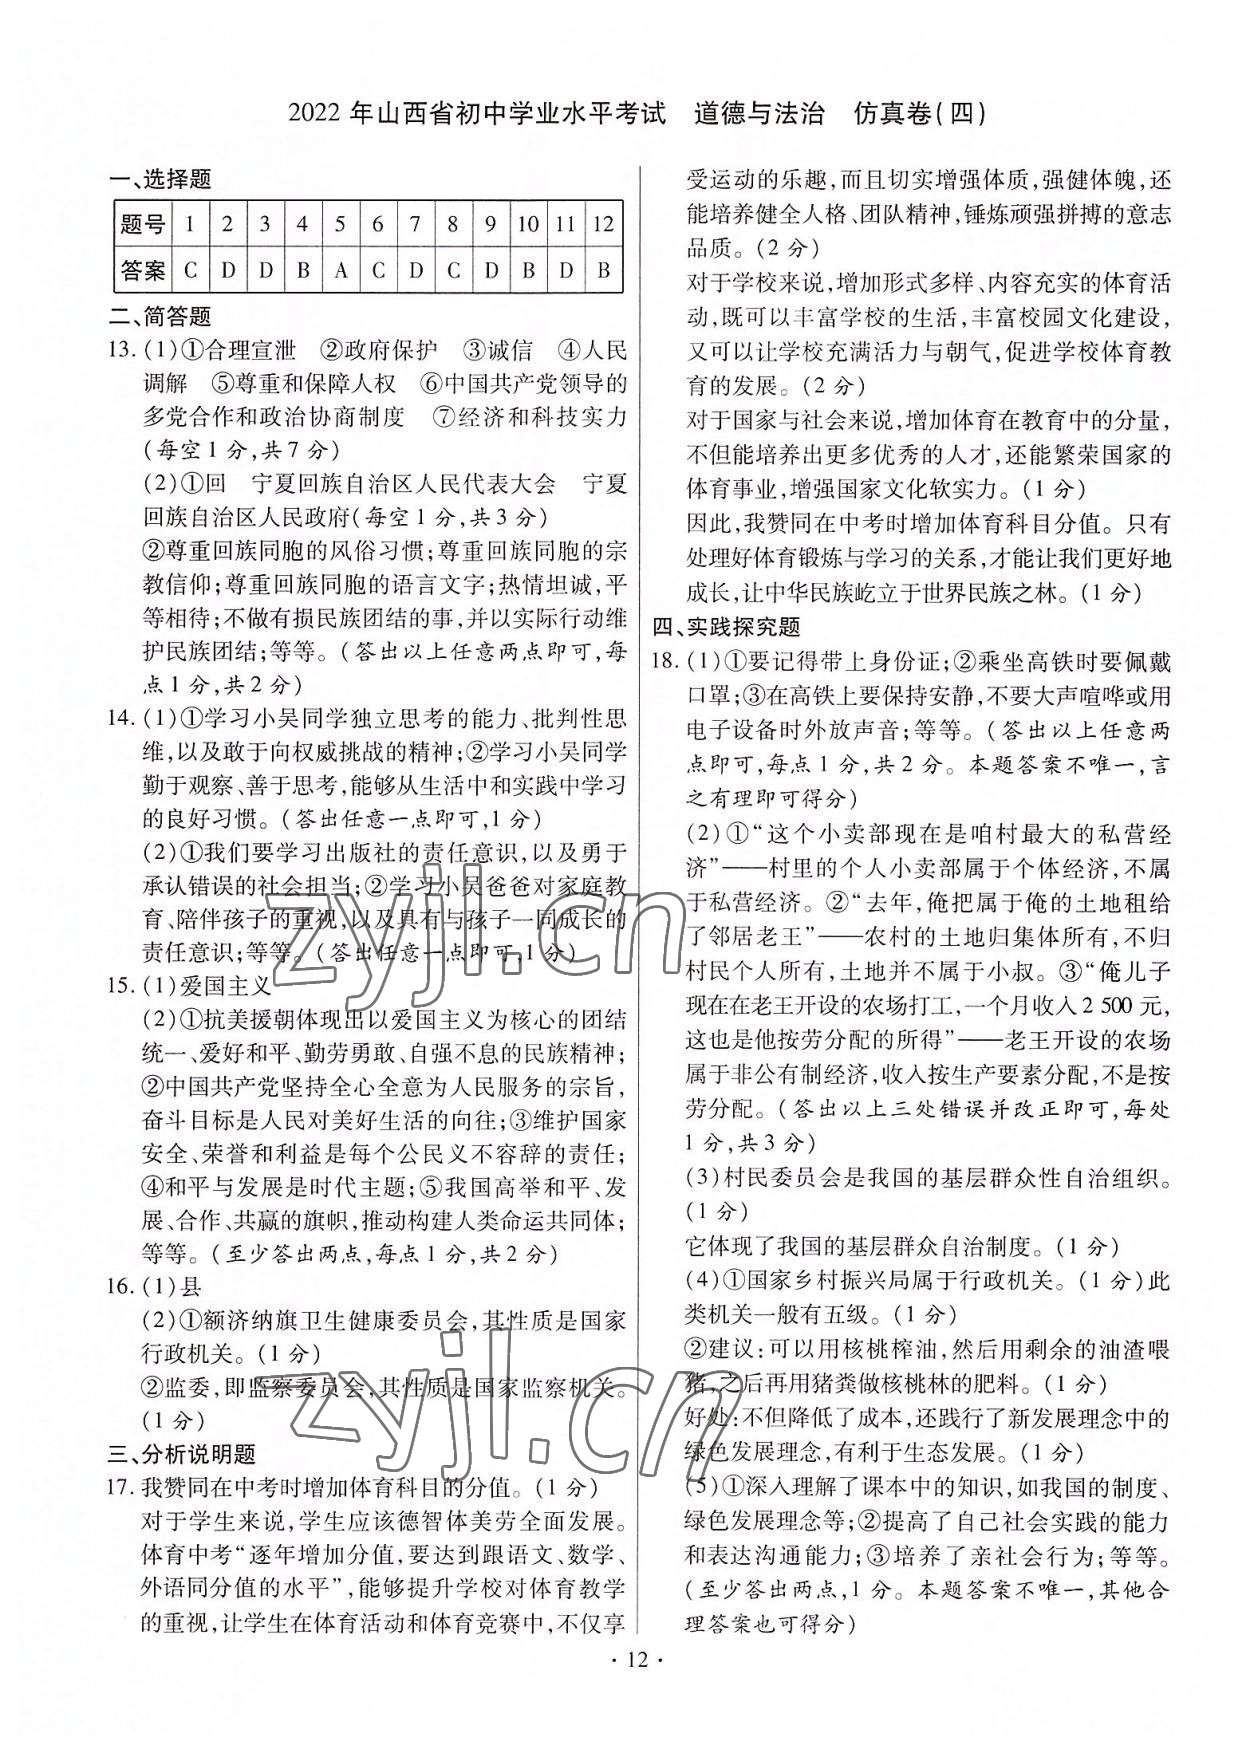 2022年山西省初中学业水平考试　道德与法治　仿真卷(四)
一、选择题
题号 1 2 3 4 5 6 7 8 9 10 11 12
答案 C D D B A C D C D B D B
二、简答题
13. (1)①合理宣泄　②政府保护　③诚信　④人民
调解　⑤尊重和保障人权　⑥中国共产党领导的
多党合作和政治协商制度　⑦经济和科技实力
(每空1分,共7分)
(2)①回　宁夏回族自治区人民代表大会　宁夏
回族自治区人民政府(每空1分,共3分)
②尊重回族同胞的风俗习惯;尊重回族同胞的宗
教信仰;尊重回族同胞的语言文字;热情坦诚,平
等相待;不做有损民族团结的事,并以实际行动维
护民族团结;等等。(答出以上任意两点即可,每
点1分,共2分)
14. (1)①学习小吴同学独立思考的能力、批判性思
维,以及敢于向权威挑战的精神;②学习小吴同学
勤于观察、善于思考,能够从生活中和实践中学习
的良好习惯。(答出任意一点即可,1分)
(2)①我们要学习出版社的责任意识,以及勇于
承认错误的社会担当;②学习小吴爸爸对家庭教
育、陪伴孩子的重视,以及具有与孩子一同成长的
责任意识;等等。(答出任意一点即可,1分)
15. (1)爱国主义
(2)①抗美援朝体现出以爱国主义为核心的团结
统一、爱好和平、勤劳勇敢、自强不息的民族精神;
②中国共产党坚持全心全意为人民服务的宗旨,
奋斗目标是人民对美好生活的向往;③维护国家
安全、荣誉和利益是每个公民义不容辞的责任;
④和平与发展是时代主题;⑤我国高举和平、发
展、合作、共赢的旗帜,推动构建人类命运共同体;
等等。(至少答出两点,每点1分,共2分)
16. (1)县
(2)①额济纳旗卫生健康委员会,其性质是国家
行政机关。(1分)
②监委,即监察委员会,其性质是国家监察机关。
(1分)
三、分析说明题
17. 我赞同在中考时增加体育科目的分值。(1分)
对于学生来说,学生应该德智体美劳全面发展。
体育中考“逐年增加分值,要达到跟语文、数学、
外语同分值的水平”,能够提升学校对体育教学
的重视,让学生在体育活动和体育竞赛中,不仅享
受运动的乐趣,而且切实增强体质,强健体魄,还
能培养健全人格、团队精神,锤炼顽强拼搏的意志
品质。(2分)
对于学校来说,增加形式多样、内容充实的体育活
动,既可以丰富学校的生活,丰富校园文化建设,
又可以让学校充满活力与朝气,促进学校体育教
育的发展。(2分)
对于国家与社会来说,增加体育在教育中的分量,
不但能培养出更多优秀的人才,还能繁荣国家的
体育事业,增强国家文化软实力。(1分)
因此,我赞同在中考时增加体育科目分值。只有
处理好体育锻炼与学习的关系,才能让我们更好地
成长,让中华民族屹立于世界民族之林。(1分)
四、实践探究题
18. (1)①要记得带上身份证;②乘坐高铁时要佩戴
口罩;③在高铁上要保持安静,不要大声喧哗或用
电子设备时外放声音;等等。(答出以上任意两
点即可,每点1分,共2分。本题答案不唯一,言
之有理即可得分)
(2)①“这个小卖部现在是咱村最大的私营经
济”——村里的个人小卖部属于个体经济,不属
于私营经济。②“去年,俺把属于俺的土地租给
了邻居老王”——农村的土地归集体所有,不归
村民个人所有,土地并不属于小叔。③“俺儿子
现在在老王开设的农场打工,一个月收入2 500元,
这也是他按劳分配的所得”——老王开设的农场
属于非公有制经济,收入按生产要素分配,不是按
劳分配。(答出以上三处错误并改正即可,每处
1分,共3分)
(3)村民委员会是我国的基层群众性自治组织。
(1分)
它体现了我国的基层群众自治制度。(1分)
(4)①国家乡村振兴局属于行政机关。(1分)此
类机关一般有五级。(1分)
②建议:可以用核桃榨油,然后用剩余的油渣喂
猪,之后再用猪粪做核桃林的肥料。(1分)
好处:不但降低了成本,还践行了新发展理念中的
绿色发展理念,有利于生态发展。(1分)
(5)①深入理解了课本中的知识,如我国的制度、
绿色发展理念等;②提高了自己社会实践的能力
和表达沟通能力;③培养了亲社会行为;等等。
(至少答出两点,1分。本题答案不唯一,其他合
理答案也可得分)
·12·
zyjl.cn
zyjl.cn